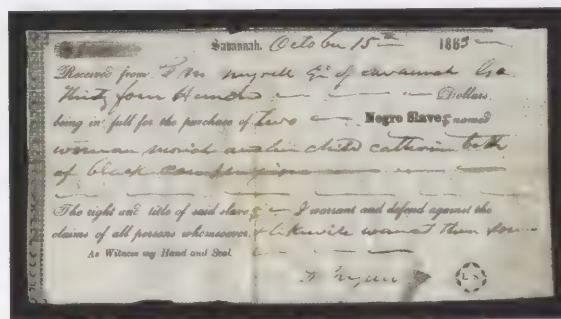 Savannah, October 15th 1863
Received from Esq of Savannah Ga
Thirty four Hundred Dollars
being in full for the purchase of two Negro Slaves named
woman and her child both
of black complexion
The right and title of said slaves I warrant and defend against the
claims of all persons whomsoever & likewise warrant them
As Witness my Hand and Seal
L S